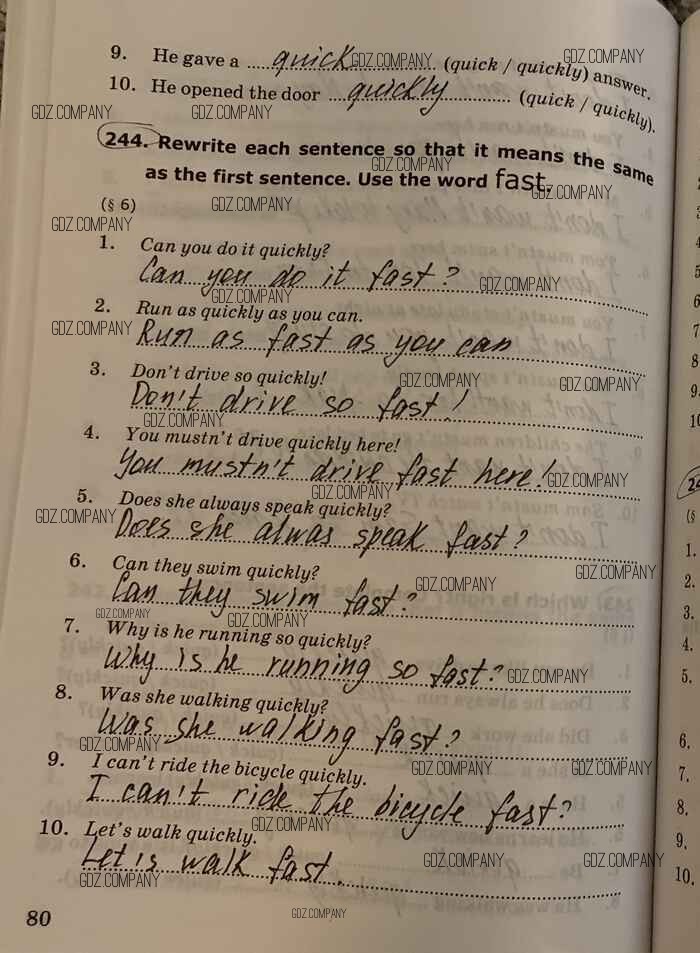 9. He gave a quick (quick / quickly) answer.
10. He opened the door quickly (quick / quickly).
244. Rewrite each sentence so that it means the same
as the first sentence. Use the word fast.
(§ 6)
1. Can you do it quickly?
Can you do it fast?
2. Run as quickly as you can.
Run as fast as you can
3. Don't drive so quickly!
Don't drive so fast!
4. You mustn't drive quickly here!
You mustn't drive fast here!
5. Does she always speak quickly?
Does she alwas speak fast?
6. Can they swim quickly?
Can they swim fast?
7. Why is he running so quickly?
Why is he running so fast?
8. Was she walking quickly?
Was she walking fast?
9. I can't ride the bicycle quickly.
I can't ride the bicycle fast?
10. Let's walk quickly.
Let's walk fast.
80
GDZ.COMPANY